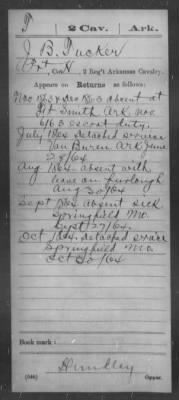 T | 2 Cav. | Ark.
J B. Tucker
Pvt, Co. H, 2 Reg't Arkansas Cavalry.
Appears on Returns as follows:
Nov 1863 & Dec 1863 absent at
Ft Smith Ark Nov
6/63 escort duty.
July 1864 detached service
Van Buren Ark June
28/64
Aug 1864 absent with
leave on furlough
Aug 30/64
Sept 1864 absent sick
Springfield Mo.
Sept 27/64.
Oct 1864 detached service
Springfield Mo
Oct 30/64
Book mark:
Hundley
(546) Copyist.